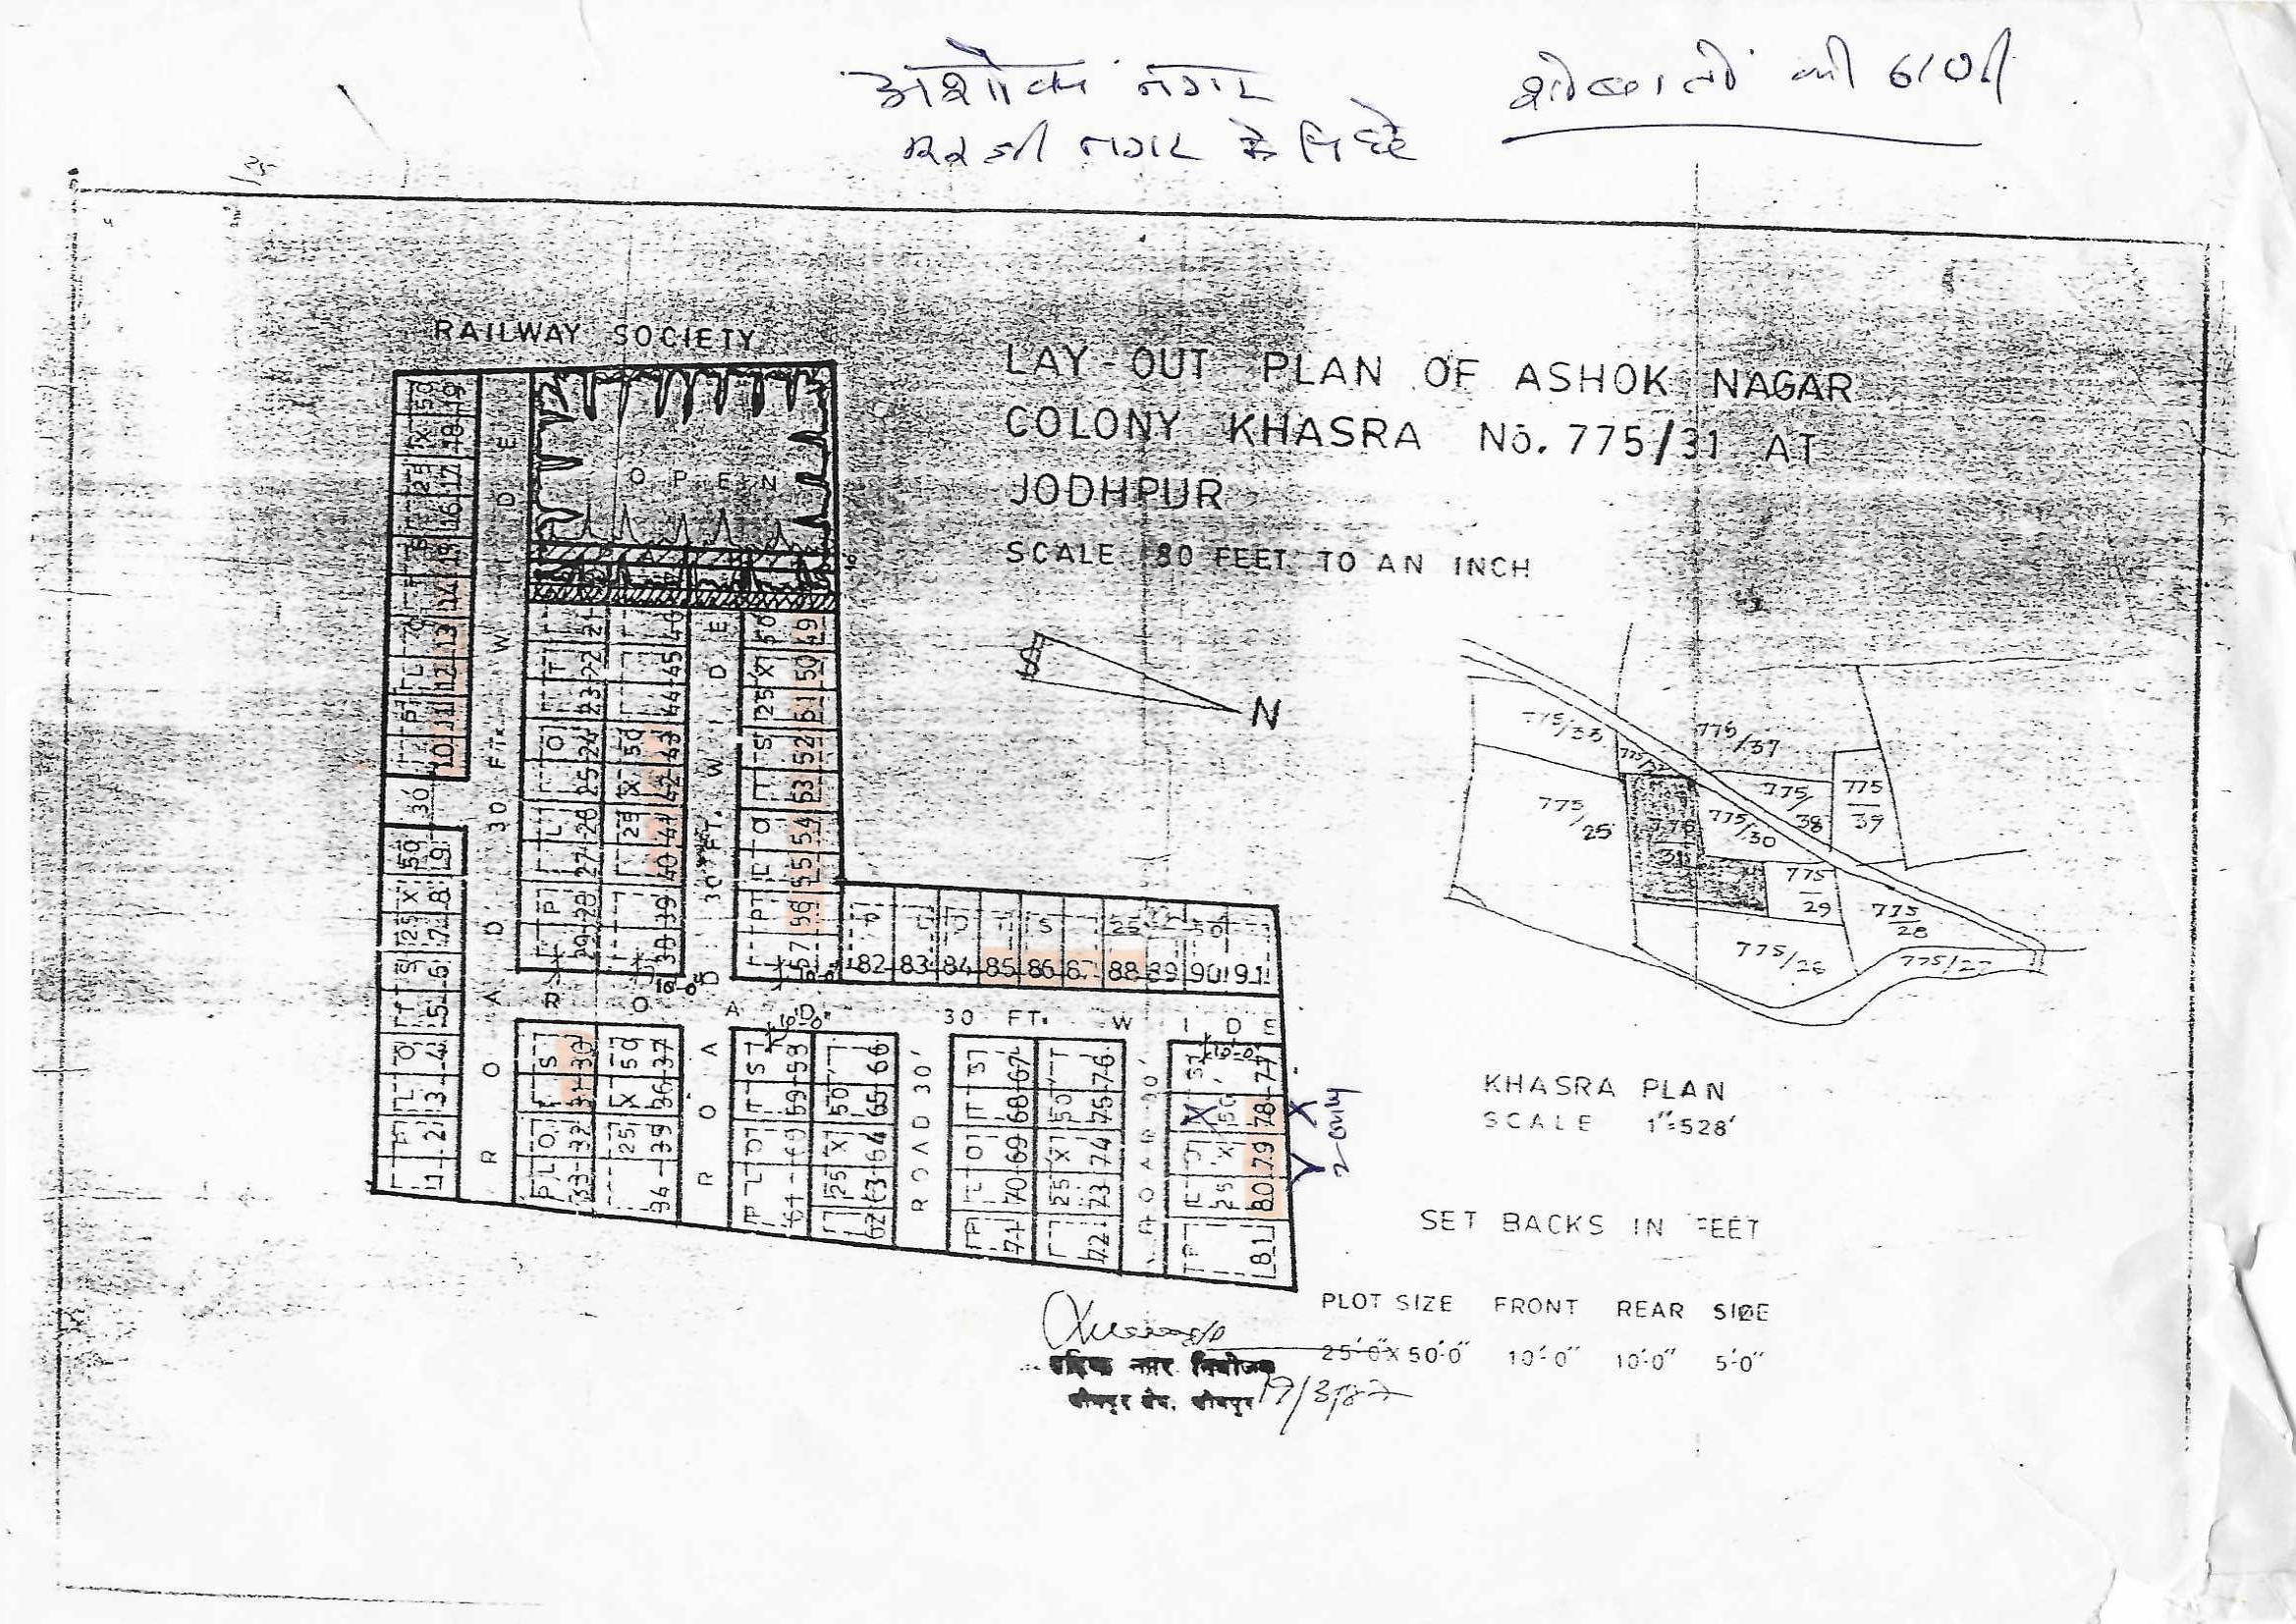 अशोक नगर
की ढाणी
सरस्वती नगर के पिछे
RAILWAY SOCIETY
LAY-OUT PLAN OF ASHOK NAGAR
COLONY KHASRA No. 775/31 AT
JODHPUR
SCALE 80 FEET TO AN INCH
OPEN
PARK
N
PLOTS 25 X 50
10 11 12 13 14 15 16 17 18 19
30'
PLOTS 25 X 50
1 2 3 4 5 6 7 8 9
ROAD 30 FT. WIDE
PLOT
29 28 27 26 25 24 23 22 21
25 X 50
38 39 40 41 42 43 44 45 46
ROAD 30 FT. WIDE
PLOTS 25 X 50
57 56 55 54 53 52 51 50 49
PLOTS 25 X 50
82 83 84 85 86 87 88 89 90 91
10'-0"
10'-0"
ROAD 30 FT. WIDE
10'-0"
10'-0"
PLOTS
33 32 31 30
25 X 50
34 35 36 37
PLOTS
61 60 59 58
25 X 50
62 63 64 65 66
ROAD 30'
PLOTS
71 70 69 68 67
25 X 50
72 73 74 75 76
ROAD 30'
PLOTS
25 X 50'
81 80 79 78 77
2 only
775/33
775/37
775/25
775/31
775/30
775/38
775/39
775/29
775/28
775/26
775/27
KHASRA PLAN
SCALE 1"=528'
SET BACKS IN FEET
PLOT SIZE FRONT REAR SIDE
25'-0" X 50'-0" 10'-0" 10'-0" 5'-0"
नगर नियोजक
जोधपुर क्षेत्र, जोधपुर